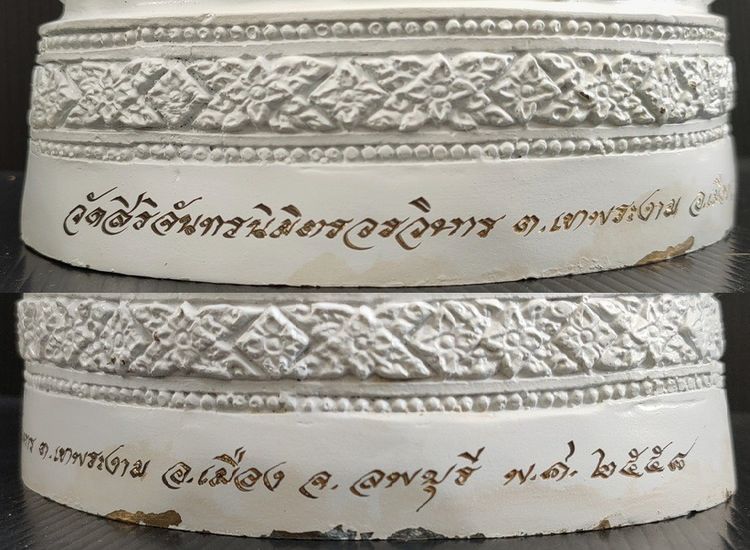 วัดสิริจันทรนิมิตรวรวิหาร ต.เขาพระงาม อ.เมือ
หาร ต.เขาพระงาม อ.เมือง จ.ลพบุรี พ.ศ. ๒๕๕๘